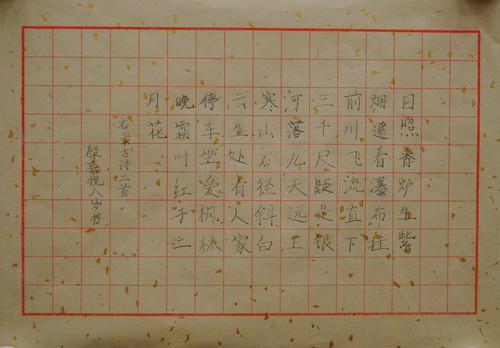 日照香炉生紫
烟遥看瀑布挂
前川飞流直下
三千尺疑是银
河落九天远上
寒山石径斜白
云生处有人家
停车坐爱枫林
晚霜叶红于二
月花
右录古诗二首
殷嘉悦八岁书